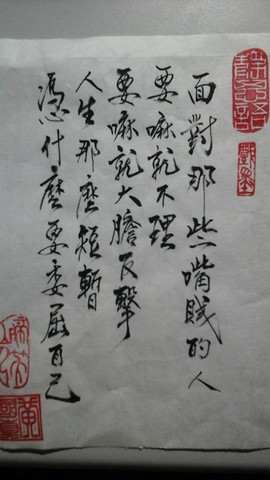 面對那些嘴賤的人
要嘛就不理
要嘛就大膽反擊
人生那麼短暫
憑什麼要委屈自己